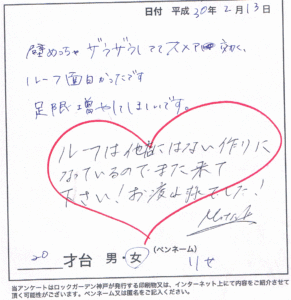 日付 平成 30年 2月 13日
壁めっちゃザラザラしててスメアー効く、
ルーフ面白かったです
足限増やしてほしいです。
ルーフは他店にはない作りに
なっているので、また来て
下さい！お疲れ様でした！
20 才台 男・女 (ペンネーム)
りせ
当アンケートはロックガーデン神戸が発行する印刷物又は、インターネット上にて内容をご紹介させて
頂く可能性がございます。ペンネーム又は匿名をご記入ください。